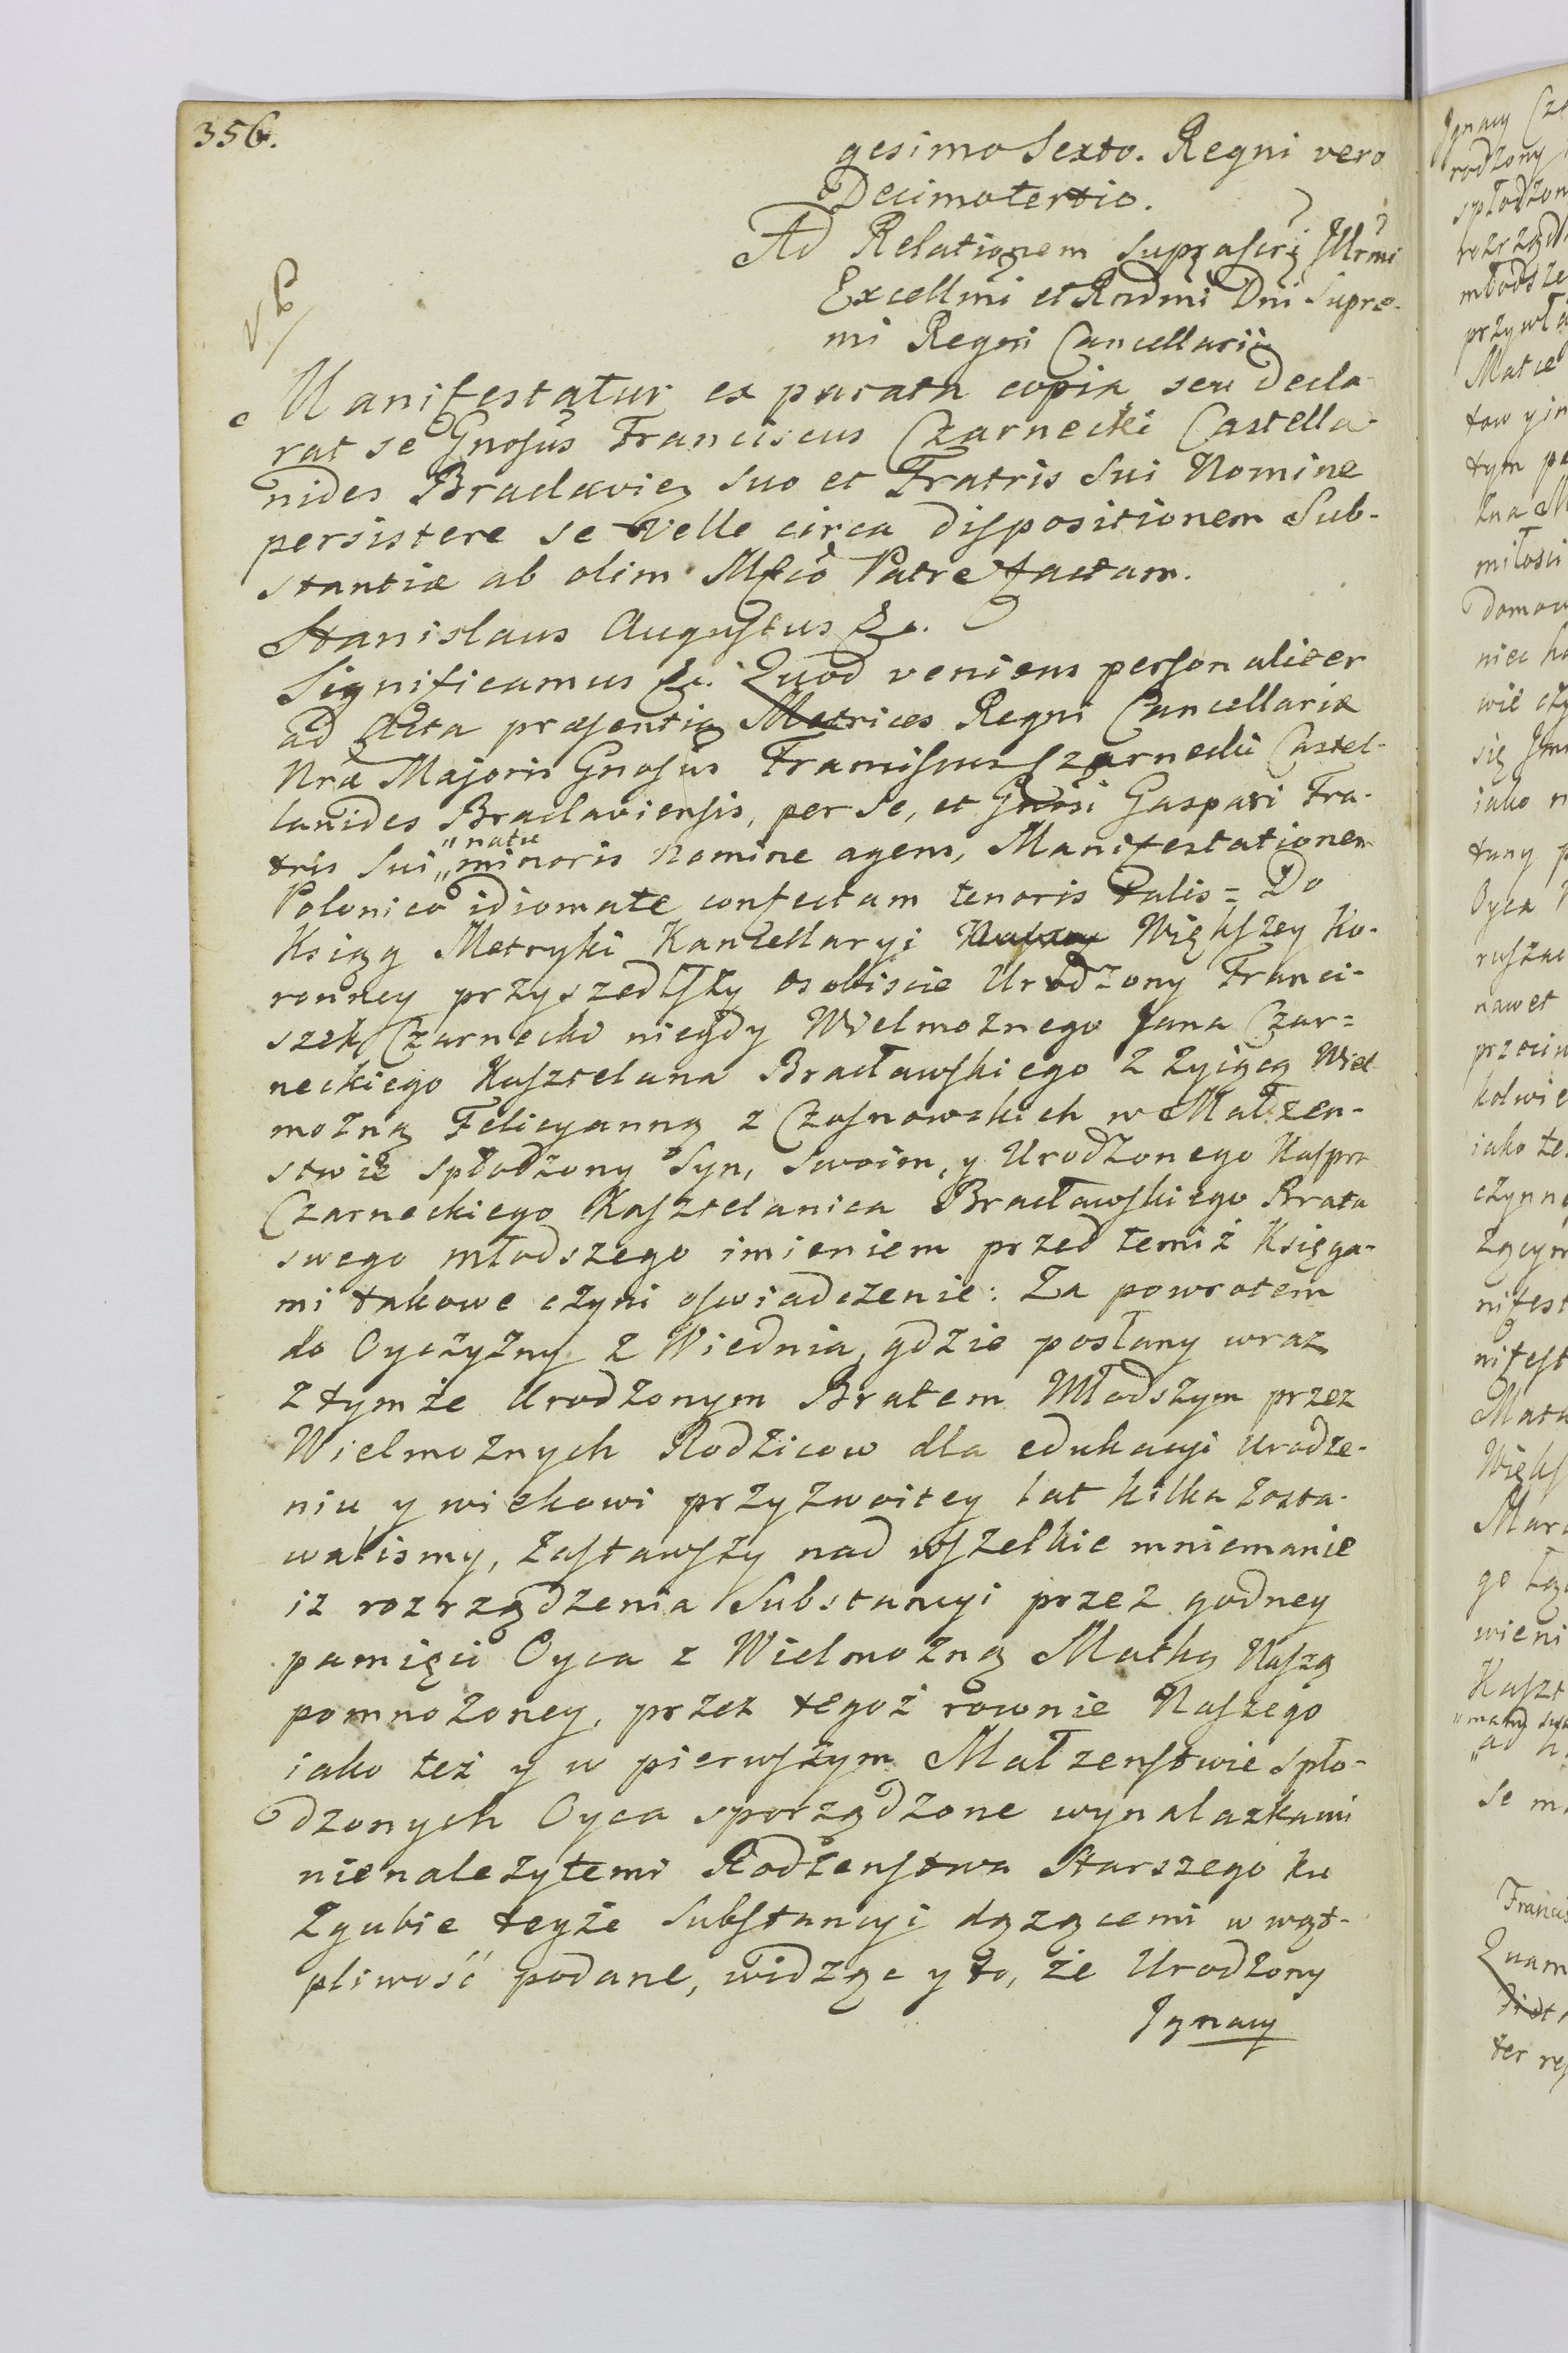 356.
gesimo Sexto. Regni vero
Decimotertio.
Ad Relationem suprascrę Illrmi
Excellmi et Rndmi Dni Supre-
mi Regni Cancellarii
Manifestatur ex parata copia seu decla-
rat se Gnosus Franciscus Czarnecki Castella-
nides Braclavięn suo et Fratris Sui Nomine
persistere se velle circa dispositionem Sub-
stantiæ ab olim Mfco Patre factam.
Stanislaus Augustus &c.
Significamus &c. Quod veniens personaliter
ad Acta præsentia Metrices Regni Cancellariæ
Nræ Majoris Gnosus Franciscus Czarnecki Castel-
lanides Braclaviensis, per se, et Gnosi Gaspari Fra-
"natu
tris Sui "minoris Nomine agens, Manifestationem
Polonico idiomate confectam tenoris talis = Do
Ksiąg Metryki Kancellaryi Większey Ko-
ronney przyszedłszy osobiscie Urodzony Franci-
szek Czarnecki niegdy Wielmoznego Jana Czar=
neckiego Kasztelana Bracławskiego z Zyiącą Wiel
mozną Felicyanną z Czosnowskich w Małzen-
stwie spłodzony Syn, swoim, y Urodzonego Kaspra
Czarneckiego Kasztelanica Bracławskiego Brata
swego młodszego imieniem przed temiż Księga-
mi takowe czyni oswiadczenie: Za powrotem
do Oyczyzny z Wiednia, gdzie posłany wraz
z tymże Urodzonym Bratem Młodszym przez
Wielmoznych Rodzicow dla edukacyi urodze-
niu y wiekowi przyzwoitey lat kilka zosta-
walismy, zastawszy nad wszelkie mniemanie
iz rozrządzenia Substancyi przez godney
pamięci Oyca z Wielmozną Matką Naszą
pomnozoney, przez tegoż rownie Naszego
iako też y w pierwszym Małzenstwie spło-
dzonych Oyca sporządzone wynalazkami
nienalezytemi Rodzenstwa Starszego ku
Zgubie teyże Substancyi dązącemi w wąt-
pliwość podane, widząc y to, że Urodzony
Ignacy